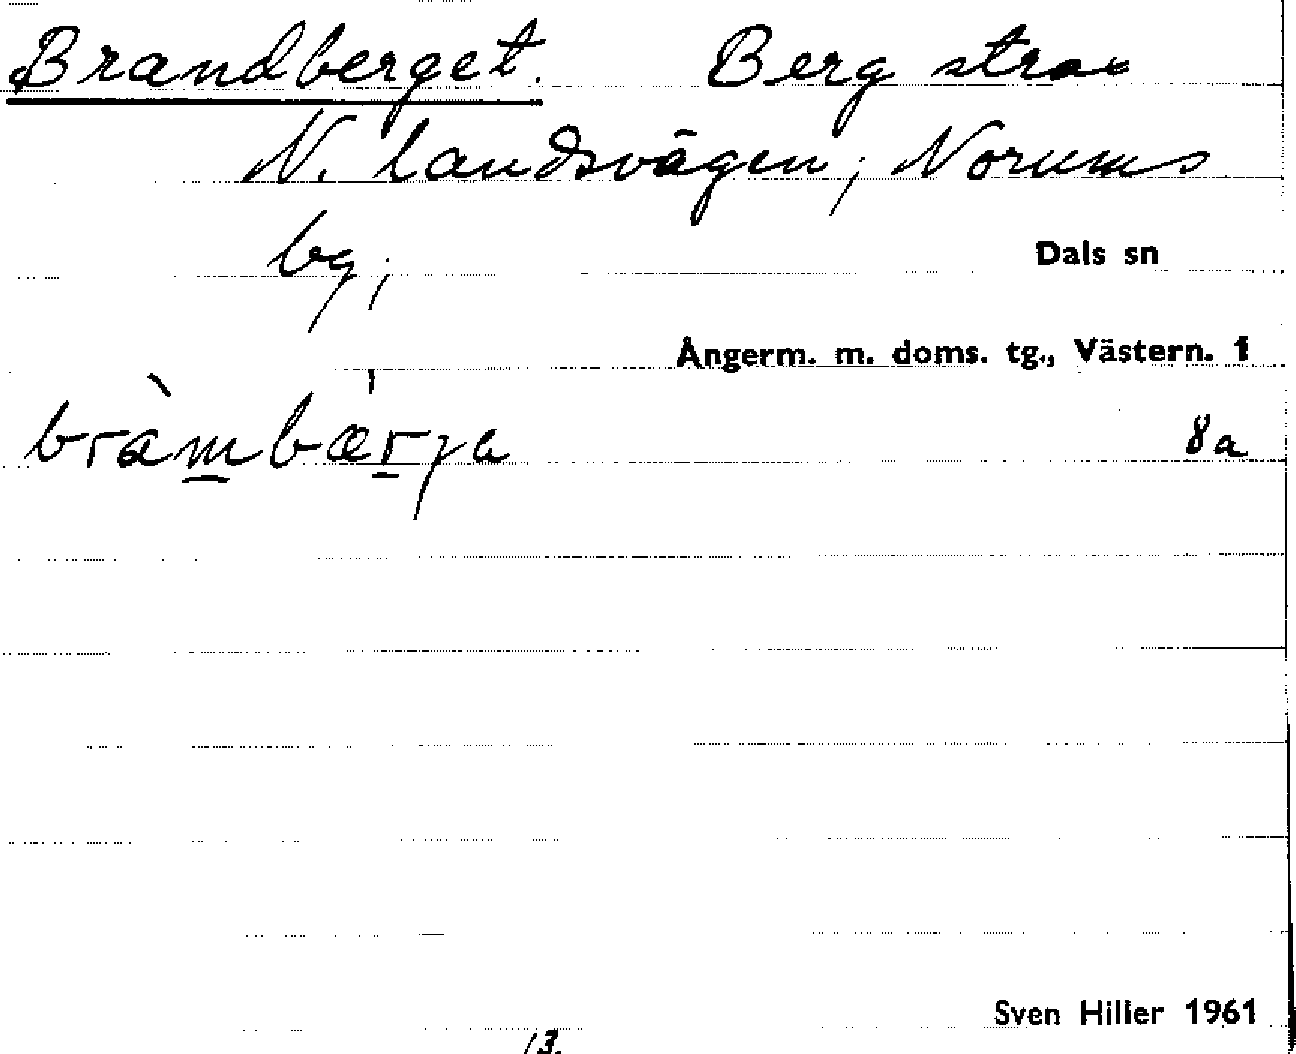 Brandberget. Berg strax
N. landsvägen, Norums
by,
Dals sn
Ångerm. m. doms. tg., Västern. 1
bràmbærja 8a
Sven Hiller 1961
13.